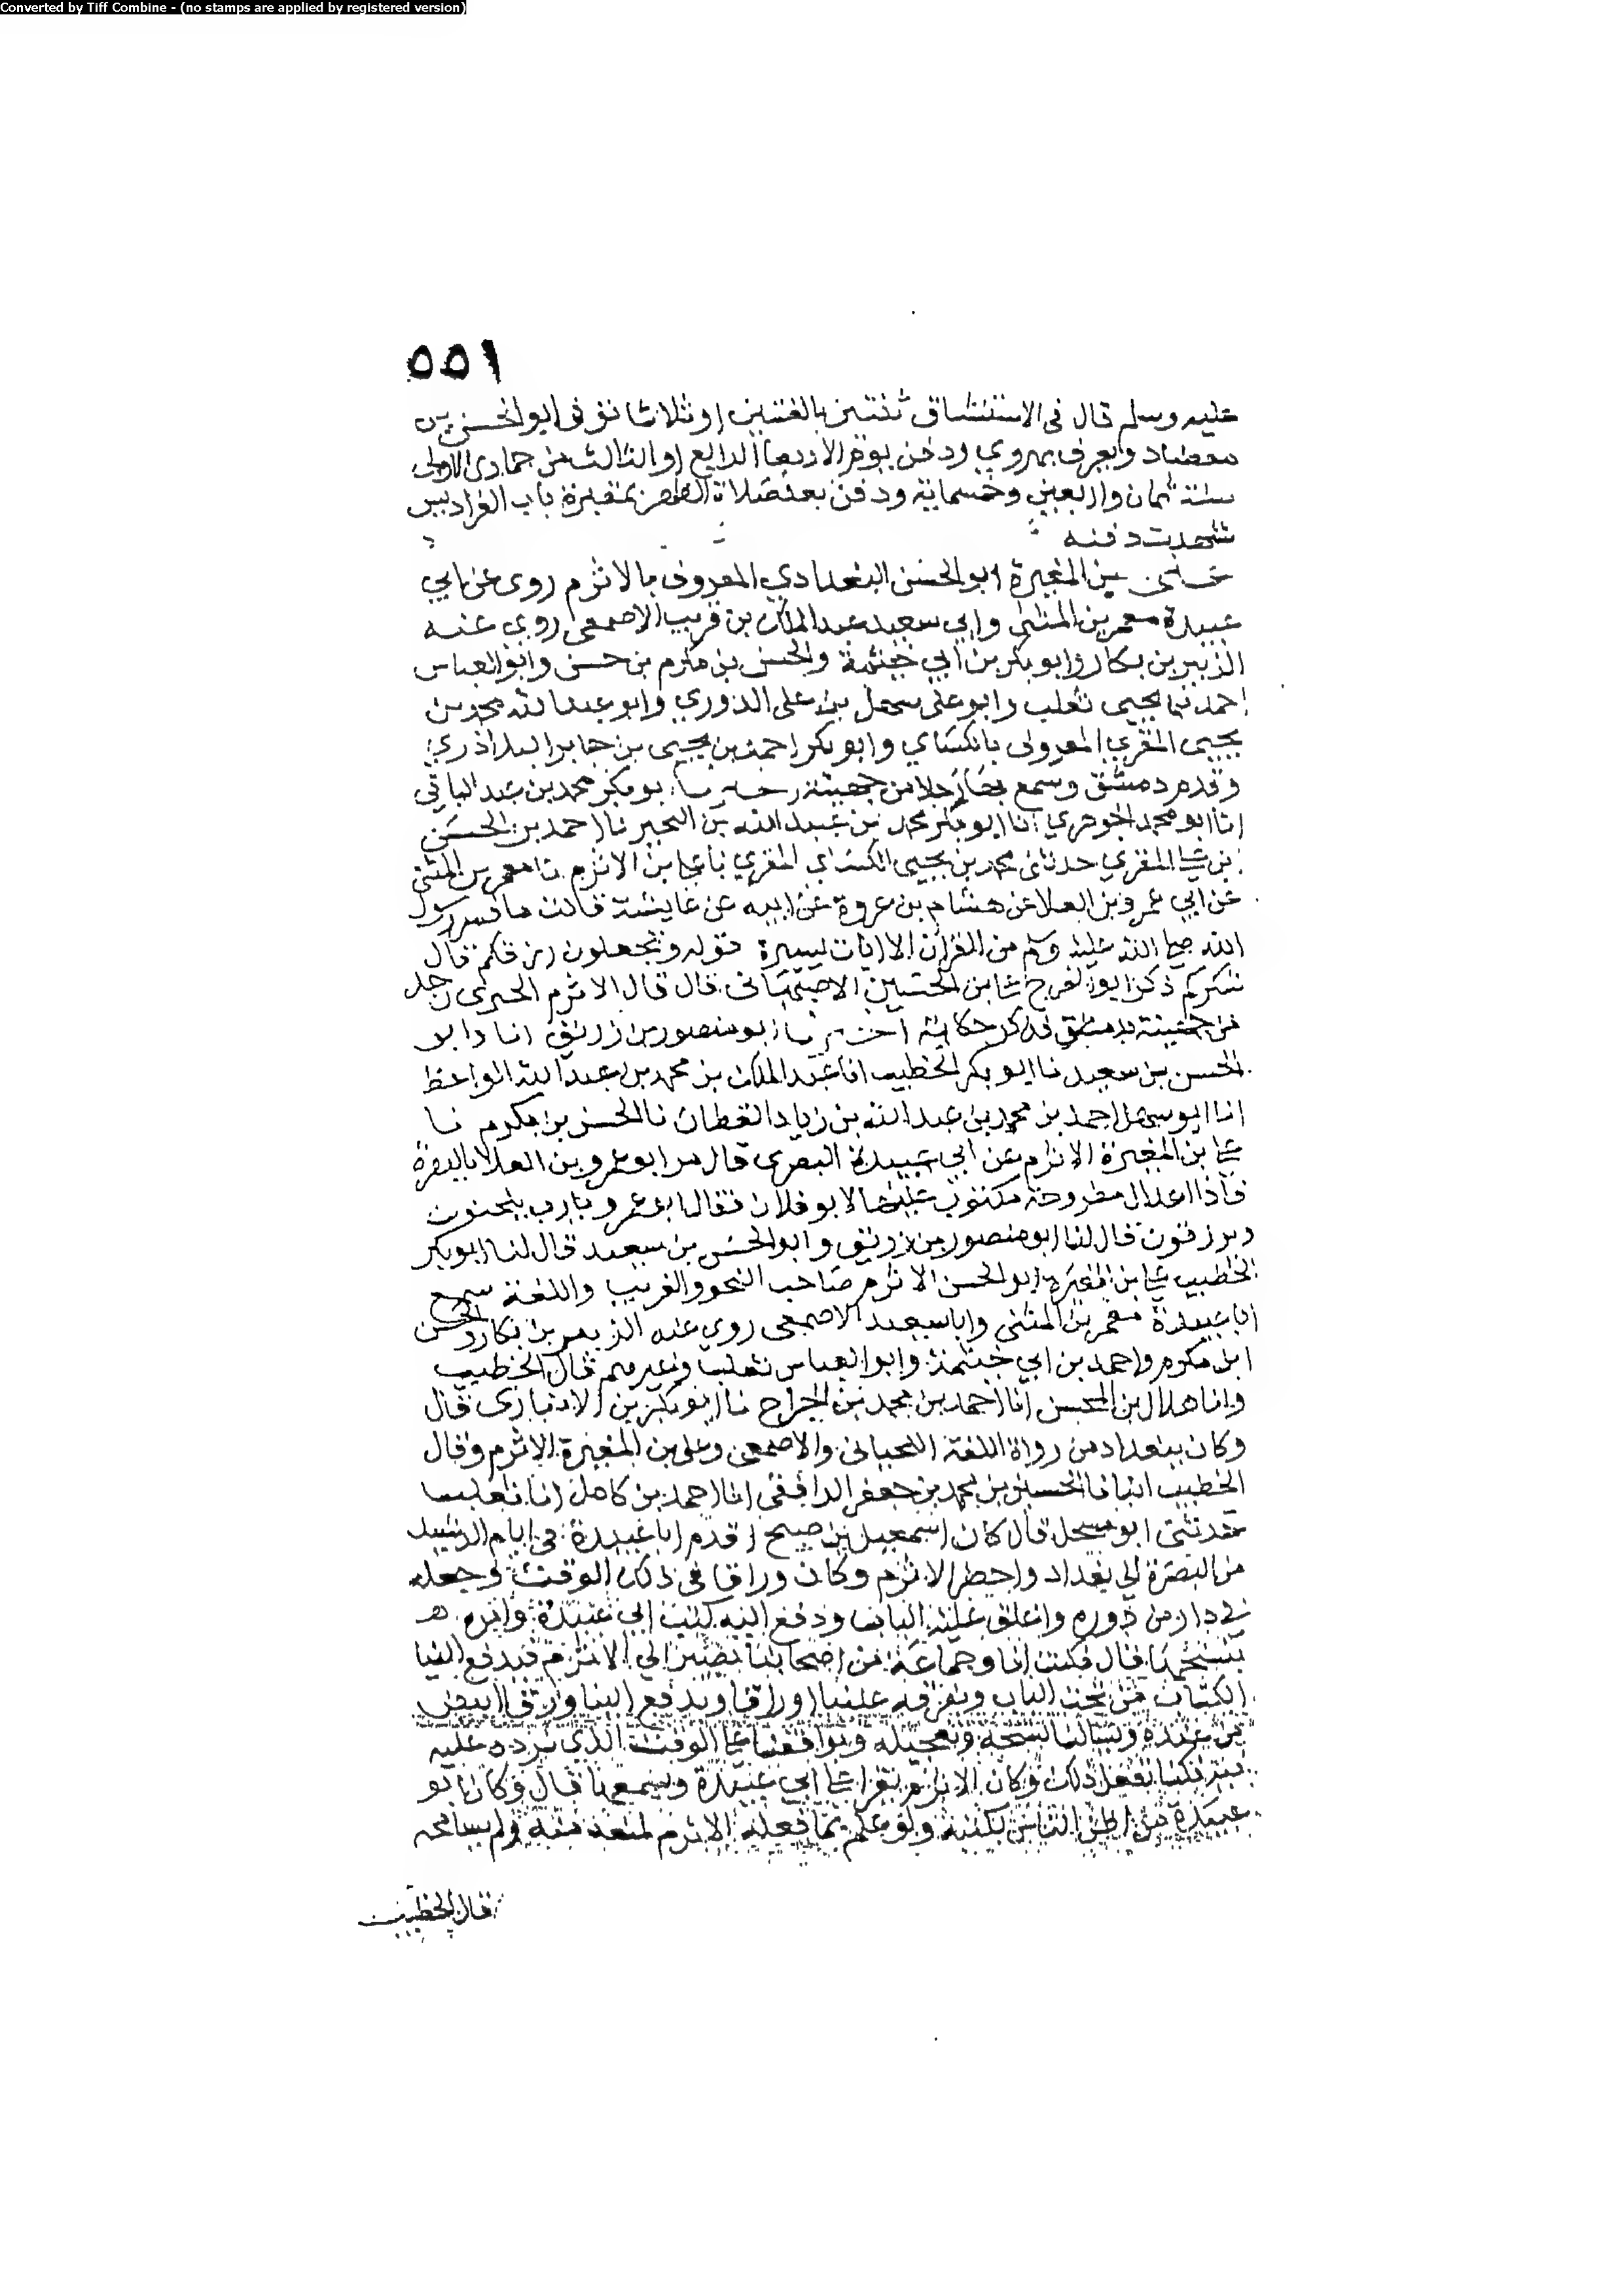 Converted by Tiff Combine - (no stamps are applied by registered version)
٥٥١
عليه وسلم قال في الاستنشاق ثنتين بالغتين او ثلاثا توفي ابو الحسن بن
معضاد ويعرف ودفن يوم الاربعا الرابع او الثالث من جمادى الاولى
سنة ثمان واربعين وخمسماية ودفن بعد صلاة الظهر بمقبرة باب الفراديس
شهدت دفنه
علي بن المغيرة ابو الحسن البغدادي المعروف بالاثرم روى عن ابي
عبيدة معمر بن المثنى وابي سعيد عبد الملك بن قريب الاصمعي روي عنه
الزبير بن بكار وابو بكر بن ابي خيثمة والحسن بن مكرم بن حسن وابو العباس
احمد بن يحيى ثعلب وابو على سهل بن على الدوري وابو عبد الله محمد بن
يحيى المقري المعروف بالكساي وابو بكر احمد بن يحيى بن جابر البلاذري
وقدم دمشق وسمع بها رجلا من جهينة ابو بكر محمد بن عبد الباقي
انا ابو محمد الجوهري انا ابو بكر محمد بن عبيد الله بن نا احمد بن الحسن
بن على المقري حدثنى محمد بن يحيى الكساي المقري نا على بن الاثرم نا معمر بن المثنى
عن ابي عمرو بن العلا عن هشام بن عروة عن ابيه عن عايشة قالت ما فسر رسول
الله صلى الله عليه وسلم من القران الا ايات يسيرة قوله وتجعلون رزقكم قال
شكركم ذكر ابو الفرج على بن الحسين الاصبهانى قال قال الاثرم رجل
من جهينة بدمشق فذكر حكاية اخبرنا ابو منصور بن زريق انا وابو
الحسن بن سعيد نا ابو بكر الخطيب انا عبد الملك بن محمد بن عبد الله الواعظ
انا ابو سهل احمد بن محمد بن عبد الله بن زياد القطان نا الحسن بن مكرم نا
على بن المغيرة الاثرم عن ابي عبيدة البصرى قال مر ابو عمرو بن العلا بالبصرة
فاذا اعدال مطروحة مكتوب عليها لابو فلان فقال ابو عمرو يارب يلحنون
ويرزقون قال لنا ابو منصور بن زريق وابو الحسن بن سعيد قال لنا ابو بكر
الخطيب على بن المغيرة ابو الحسن الاثرم صاحب النحو والغريب واللغة سمع
ابا عبيدة معمر بن المثنى وابا سعيد الاصمعى روى عنه الزبير بن بكار والحسن
ابن مكرم واحمد بن ابي خيثمة وابو العباس ثعلب وغيرهم قال الخطيب
وانا هلال بن المحسن انا احمد بن محمد بن الجراح نا ابو بكر بن الانبارى قال
وكان ببغداد من رواة اللغة اللحيانى والاصمعى وعلى بن المغيرة الاثرم وقال
الخطيب انبانا الحسين بن محمد بن جعفر الرافقى انا احمد بن كامل انا ثعلب
حدثنى ابو مسحل قال كان اسمعيل بن صبيح اقدم ابا عبيدة في ايام الرشيد
من البصرة الي بغداد واحضر الاثرم وكان وراقا في ذلك الوقت وجعله
في دار من دوره واغلق عليه الباب ودفع اليه كتب ابي عبيدة وامره
بنسخها قال فكنت انا وجماعة من اصحابنا نصير الي الاثرم فيدفع الينا
الكتاب من تحت الباب ويفرقه علينا اوراقا ويدفع الينا ورقا ابيض
من عنده ويسالنا نسخه وتعجيله ويوافقنا على الوقت الذي نرده عليه
فيه فكنا نفعل ذلك وكان الاثرم يقرا على ابي عبيدة ويسمعها قال وكان ابو
عبيدة من اضن الناس بكتبه ولو علم بما فعله الاثرم لمنعه منه ولم يسامحه
قال الخطيب